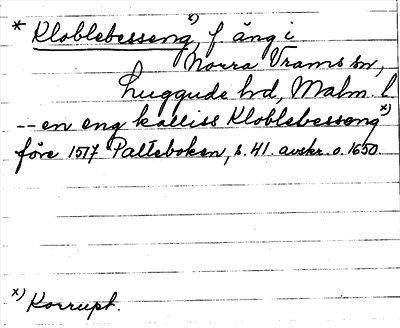 * Kloblebesseng x), f äng i
Norra Vrams sn,
Luggude hd, Malm. l
-- en eng kalliss Kloblebesseng x)
före 1517 Palteboken, s. 41. avskr. o. 1650.
x) Korrupt.